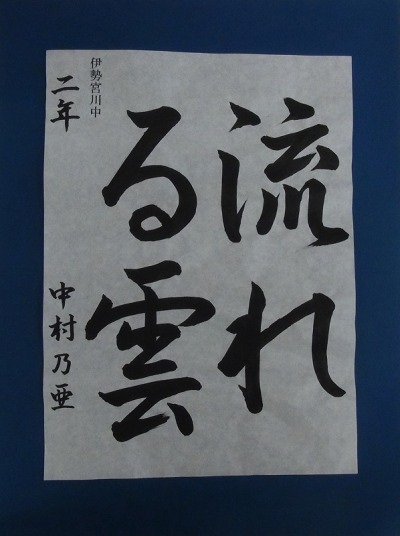 流れ
る雲
伊勢宮川中
二年 中村乃亜